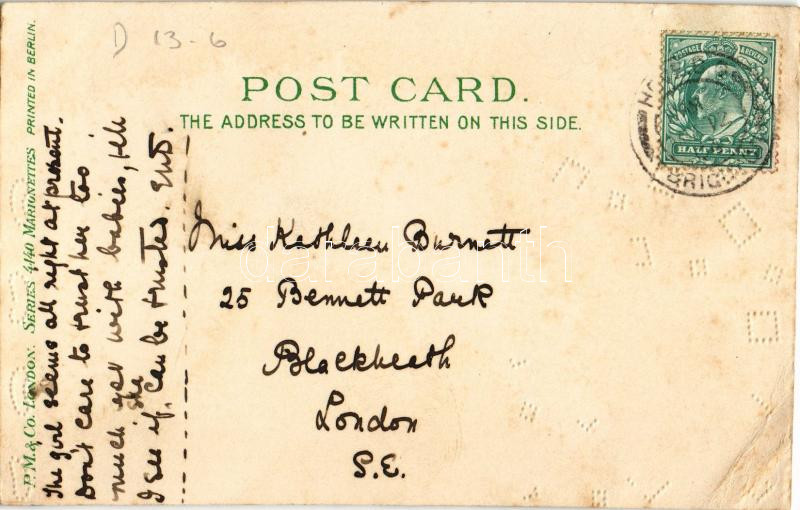 D 13-6
POST CARD.
THE ADDRESS TO BE WRITTEN ON THIS SIDE.
POSTAGE & REVENUE
HALF PENNY
BRIG
Miss Kathleen Burnett
25 Bennett Park
Blackheath
London
S.E.
P.M.& Co. LONDON. SERIES 4/40 MARIONETTES PRINTED IN BERLIN.
The girl seems all right at present.
Don't care to trust her too
much yet with babies, till
I see if she can be trusted. End.
darabanth